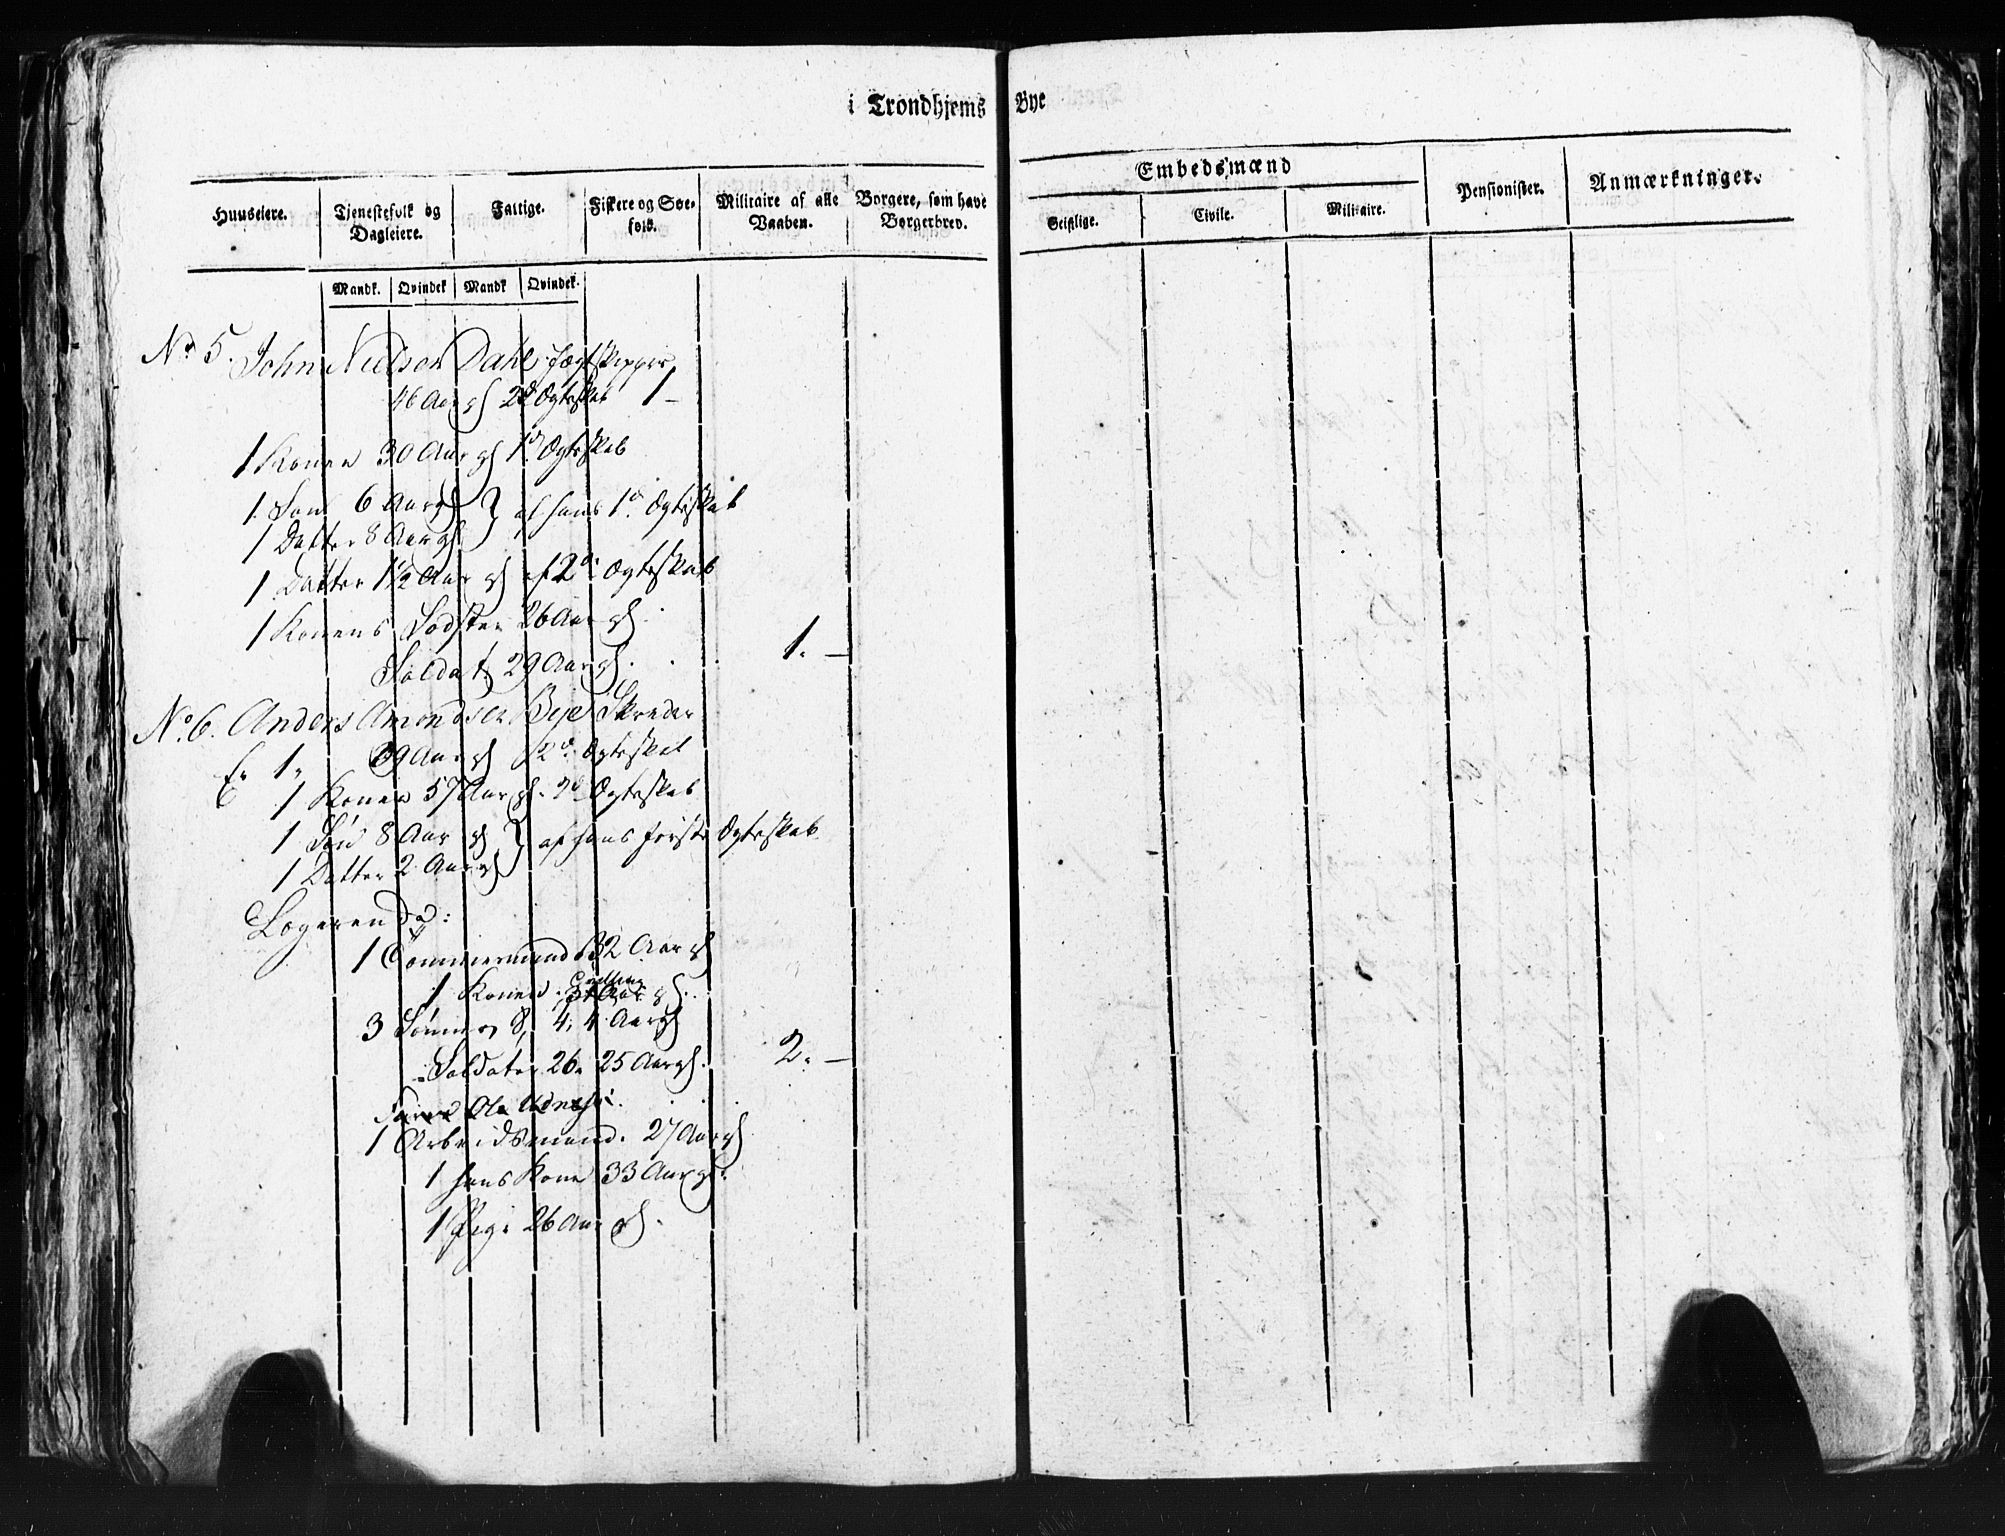 i Trondhjems Bye
Huuseiere.
Tjenestefolk og Dagleiere.
Fattige.
Fiskere og Søefolk.
Militaire af alle Vaaben.
Borgere, som have Borgerbrev.
Embedsmænd
Geistlige.
Civile.
Militaire.
Pensionister.
Anmærkninger.
Mandk. Qvindek Mandk Qvindek.
No 5. John Nielsen Dahl Jægtskipper
46 Aar gl 2d Ægteskab 1 -
1 Konen 30 Aar gl 1d Ægteskab
1 Søn 6 Aar gl } af hans 1d Ægteskab
1 Datter 8 Aar gl
1 Datter 1½ Aar gl af 2d Ægteskab
1 Konens Sødster 26 Aar gl.
Soldat 29 Aar gl. 1. -
No 6. Anders Amondsen Beje Skreder
1. 69 Aar gl 2d Ægteskab
1 Konen 57 Aar gl. 2d Ægteskab
1 Søn 8 Aar gl } af hans første Ægteskab
1 Datter 2 Aar gl
Logerende:
1 Tømmermand 32 Aar gl
1 Konen 34 Aar gl.
3 Sønner 8, 4, 4 Aar gl
Soldater 26. 25 Aar gl. 2. -
Ole
1 Arbeidsmand. 27 Aar gl
1 hans Kone 33 Aar gl.
1 Pige 26 Aar gl.